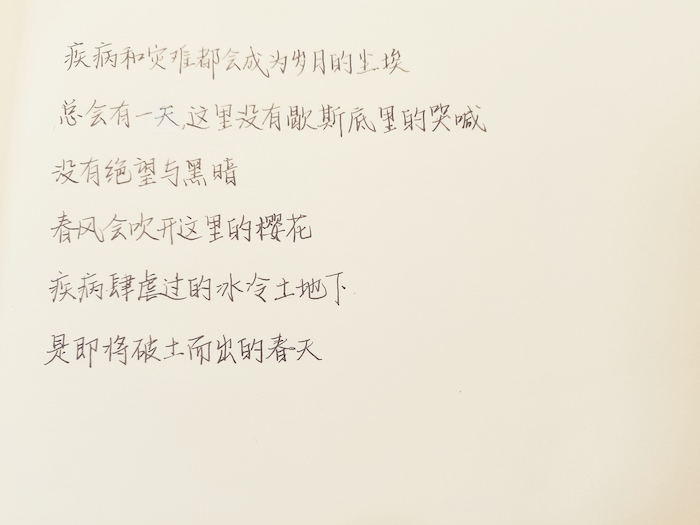 疾病和灾难都会成为岁月的尘埃
总会有一天,这里没有歇斯底里的哭喊
没有绝望与黑暗
春风会吹开这里的樱花
疾病肆虐过的冰冷土地下
是即将破土而出的春天